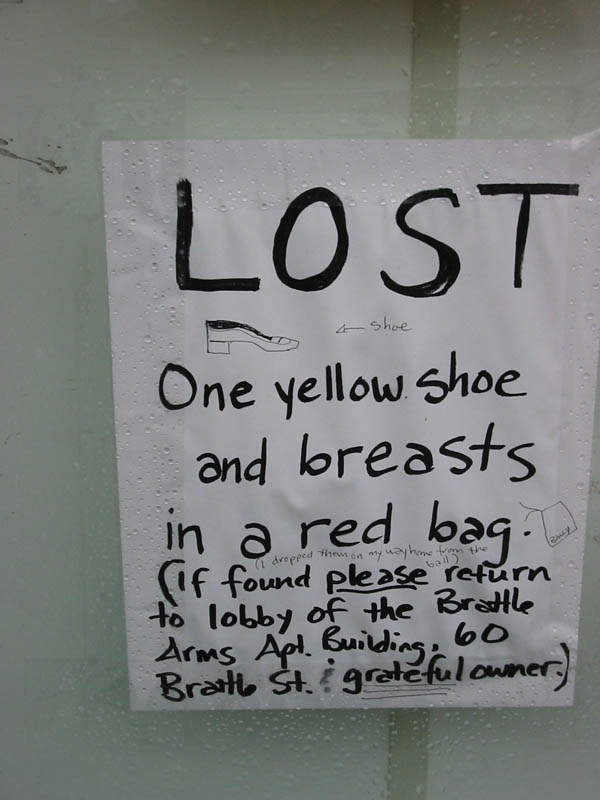 LOST
← shoe
One yellow shoe
and breasts
in a red bag.
(I dropped them on my way home from the
ball)
(If found please return
to lobby of the Brattle
Arms Apt. Building, 60
Brattle St. : grateful owner.)